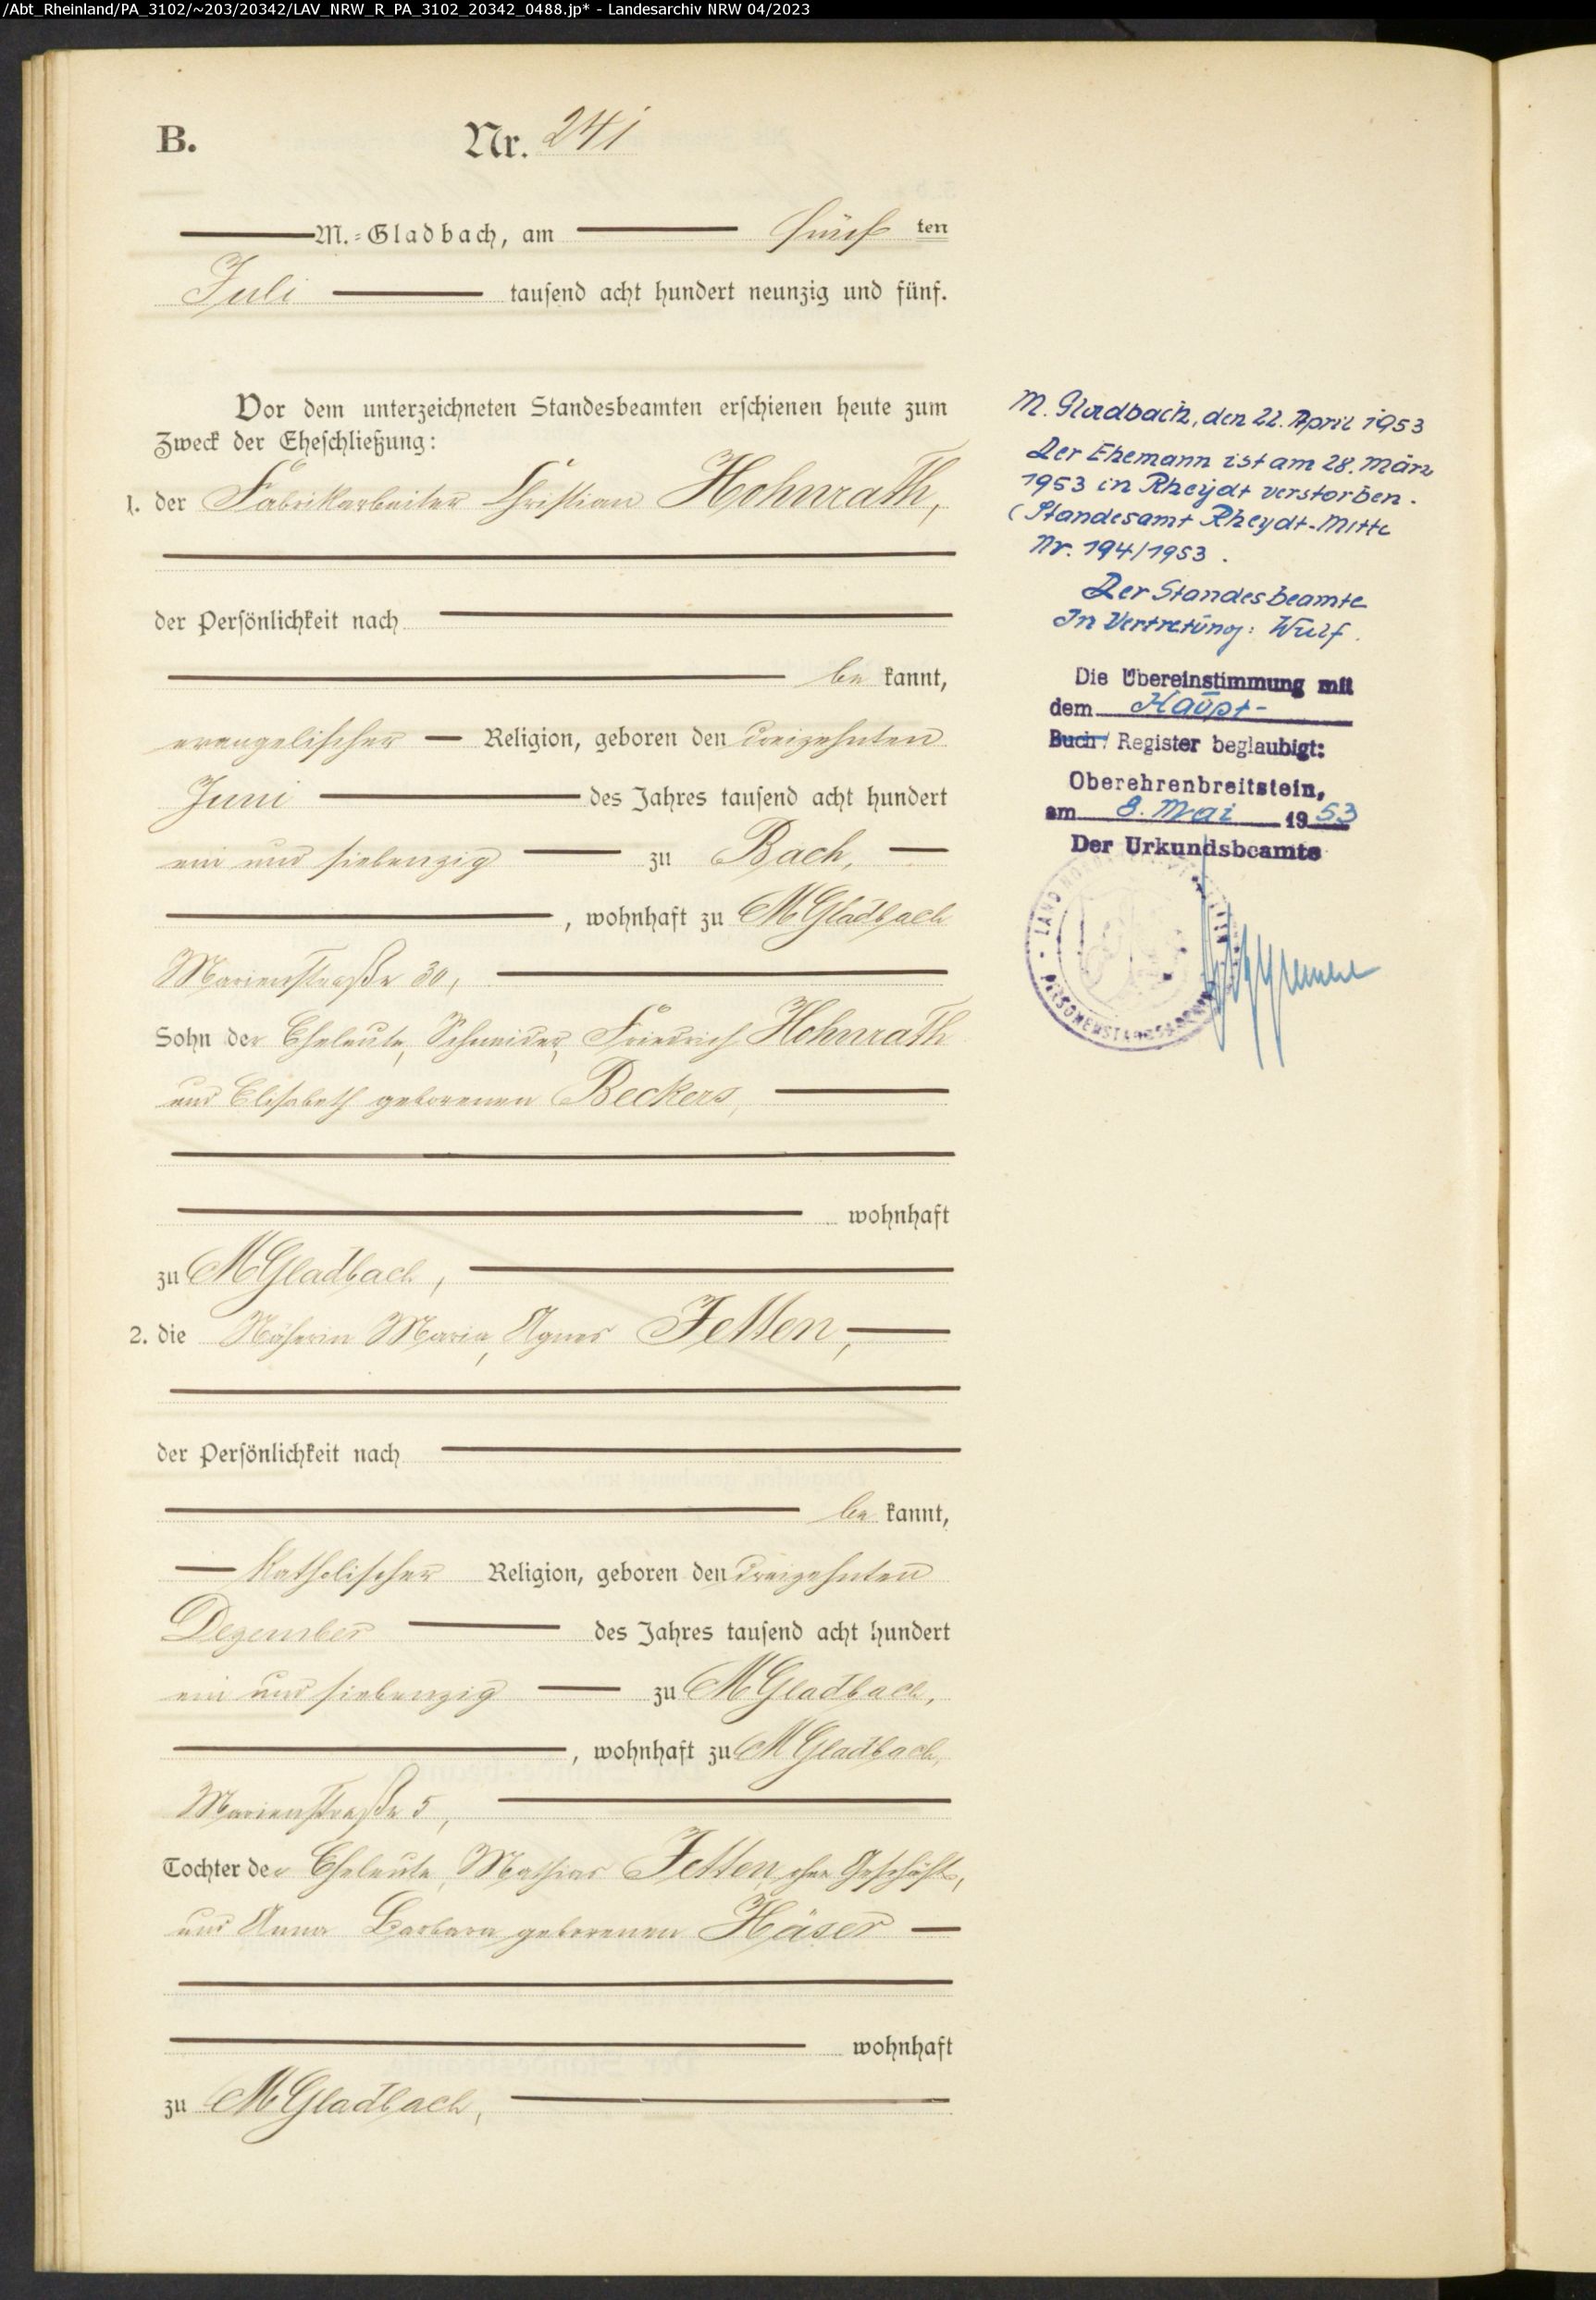 /Abt_Rheinland/PA_3102/~203/20342/LAV_NRW_R_PA_3102_20342_0488.jp* - Landesarchiv NRW 04/2023
B. Nr. 241
M.=Gladbach, am fünf ten
Juli tausend acht hundert neunzig und fünf.
Vor dem unterzeichneten Standesbeamten erschienen heute zum
Zweck der Eheschließung:
1. der Fabrikarbeiter Christian Hohnrath,
der Persönlichkeit nach
be kannt,
evangelischer Religion, geboren den dreizehnten
Juni des Jahres tausend acht hundert
ein und siebenzig zu Bach,
, wohnhaft zu MGladbach
Marienstraße 30,
Sohn der Eheleute, Schneider, Friedrich Hohnrath
und Elisabeth geborenen Beckers,
wohnhaft
zu MGladbach,
2. die Näherin Maria, Agnes Fetten,
der Persönlichkeit nach
be kannt,
katholischer Religion, geboren den dreizehnten
Dezember des Jahres tausend acht hundert
ein und siebenzig zu MGladbach,
, wohnhaft zu MGladbach,
Marienstraße 5,
Tochter der Eheleute, Mathias Fetten, ohne Geschäft,
und Anna Barbara geborenen Häser
wohnhaft
zu MGladbach,
M. Gladbach, den 22. April 1953
Der Ehemann ist am 28. März
1953 in Rheydt verstorben.
(Standesamt Rheydt-Mitte
Nr. 194/1953.
Der Standesbeamte
In Vertretung: Wulf.
Die Übereinstimmung mit
dem Haupt-
Buch / Register beglaubigt:
Oberehrenbreitstein,
am 8. Mai 1953
Der Urkundsbeamte